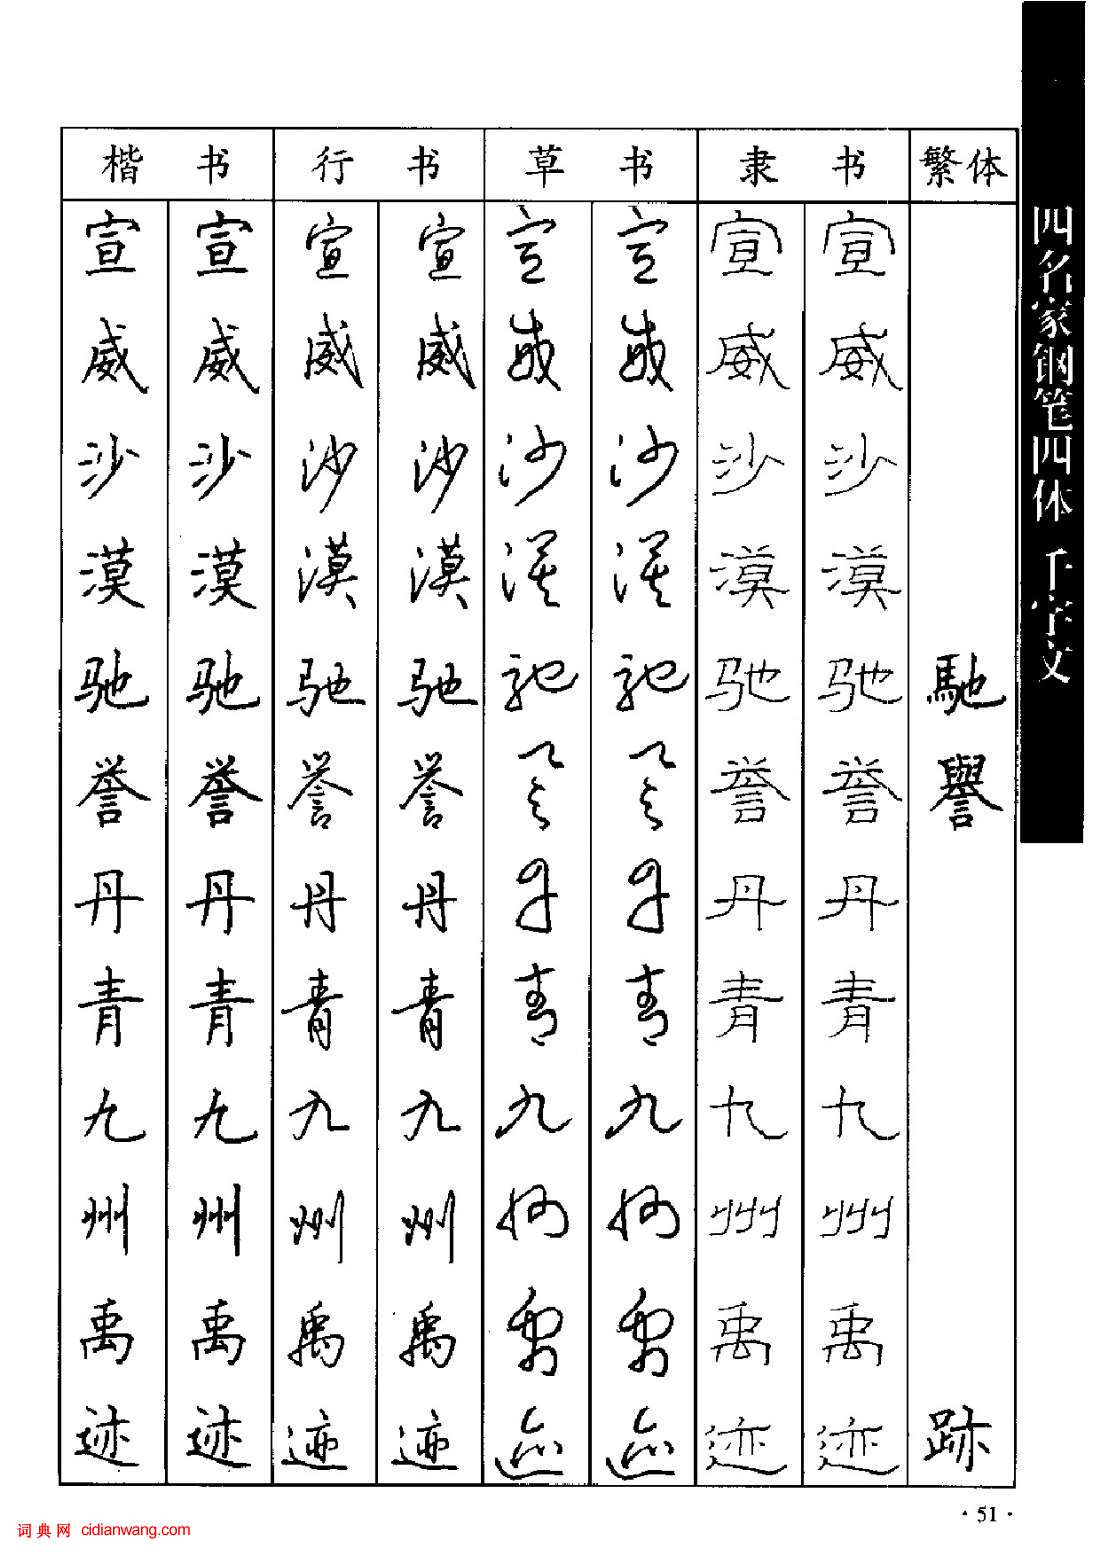 四名家钢笔四体 千字文
楷 书 行 书 草 书 隶 书 繁体
宣 宣 宣 宣 宣 宣 宣 宣
威 威 威 威 威 威 威 威
沙 沙 沙 沙 沙 沙 沙 沙
漠 漠 漠 漠 漠 漠 漠 漠
驰 驰 驰 驰 驰 驰 驰 驰 馳
誉 誉 誉 誉 誉 誉 誉 誉 譽
丹 丹 丹 丹 丹 丹 丹 丹
青 青 青 青 青 青 青 青
九 九 九 九 九 九 九 九
州 州 州 州 州 州 州 州
禹 禹 禹 禹 禹 禹 禹 禹
迹 迹 迹 迹 迹 迹 迹 迹 跡
· 51 ·
词典网 cidianwang.com